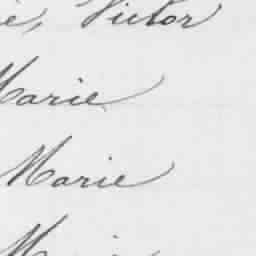 e, Victor
Marie
Marie